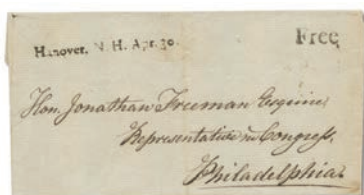 Hanover, N. H. Apr. 30.
Free
Hon. Jonathan Freeman Esquire
Representative in Congress,
Philadelphia